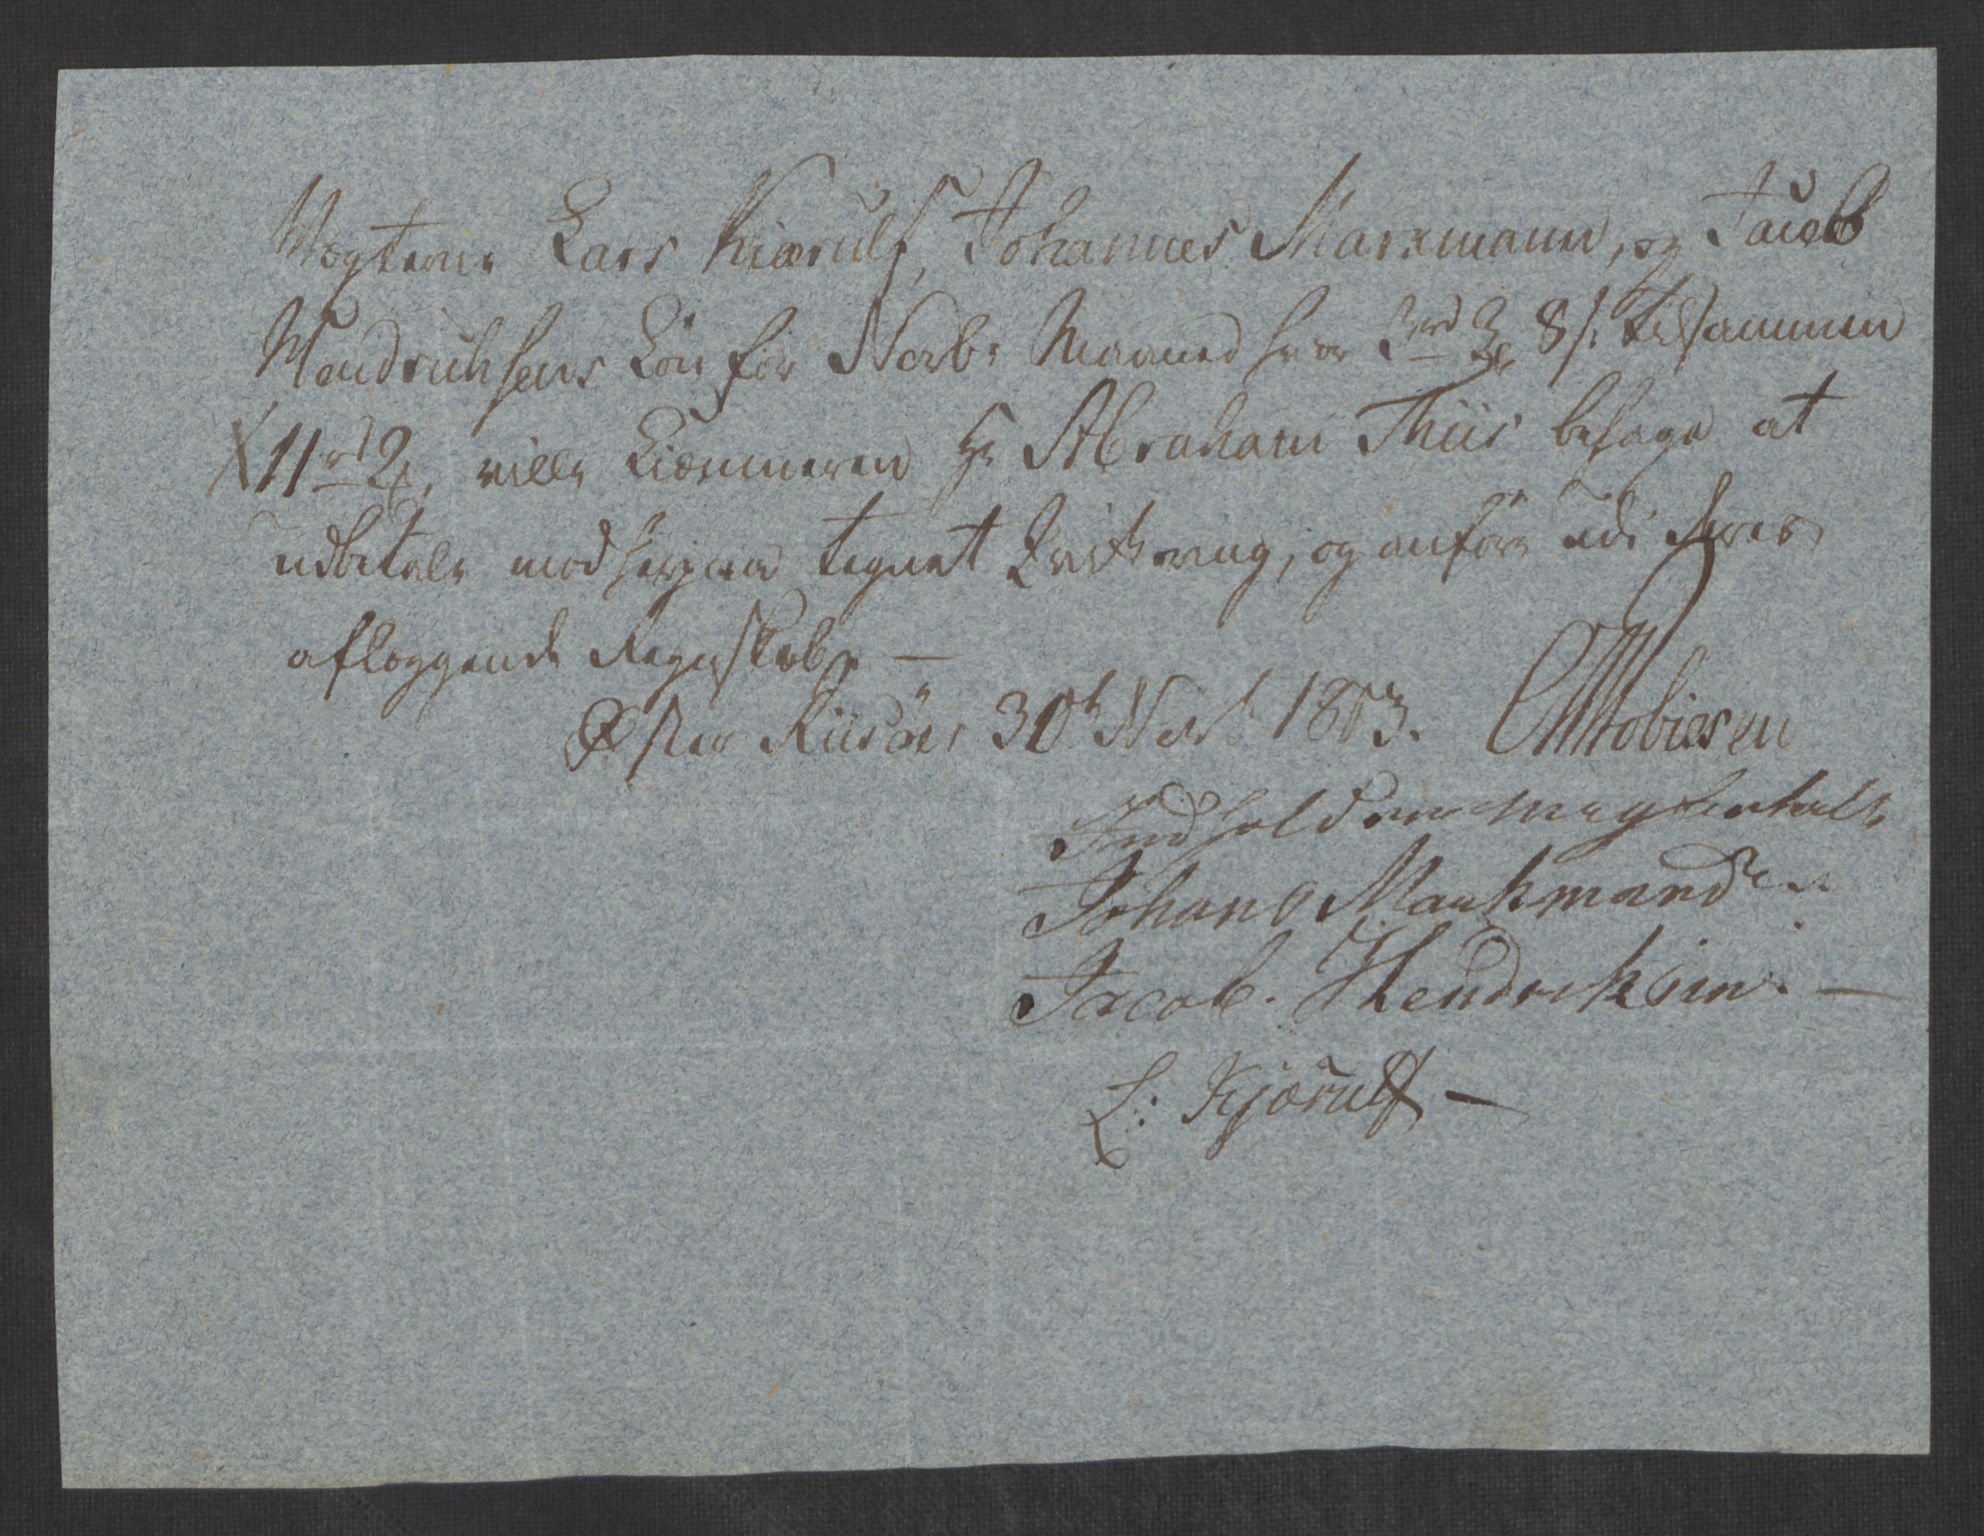 Vægterne Lars Kiærulf, Johannes Marxmann, og Jacob
Hendrichsens Løn for Novbr Maaned hver 3rd 3 8s. tilsammen
11rd 2, ville Kiæmneren Hr Abraham Thiis behage at
udbetale mod herpaa tegnet Qvittering, og anføre udi deres
aflæggende Regnskaber. —
Øster Riisøer 30t Novb. 1803. Tobiesen
Indholdene meg
Johan Markmand
Jacob. Hendriksen. —
L: Kjørulf —